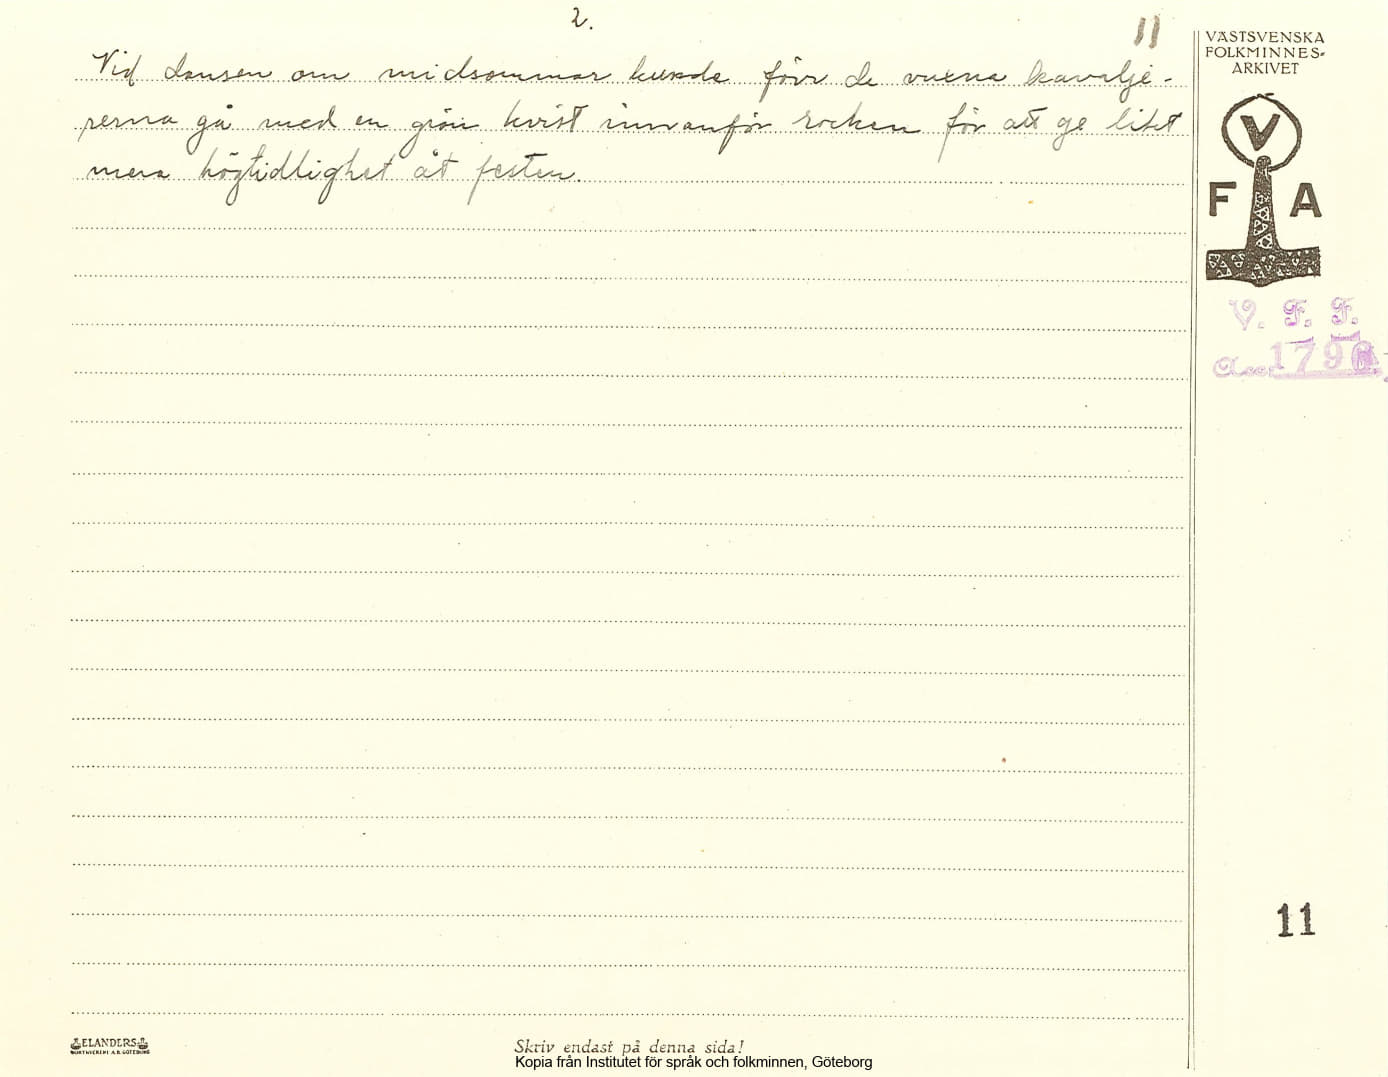 2.
11
Vid dansen om midsommar kunde förr de vuxna kavalje-
rerna gå med en grön kvist innanför rocken för att ge litet
mera högtidlighet åt festen.
VÄSTSVENSKA
FOLKMINNES-
ARKIVET
V
F A
V. F. F.
Acc. 1796
11
ELANDERS
BOKTRYCKERI A.B. GÖTEBORG
Skriv endast på denna sida!
Kopia från Institutet för språk och folkminnen, Göteborg